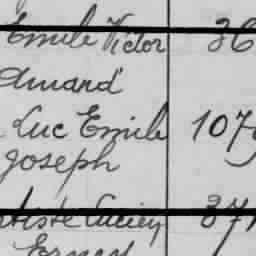 Emile Victor 36
Amand
Luc Emile 107
Joseph
tiste Lucien 371
Ernest